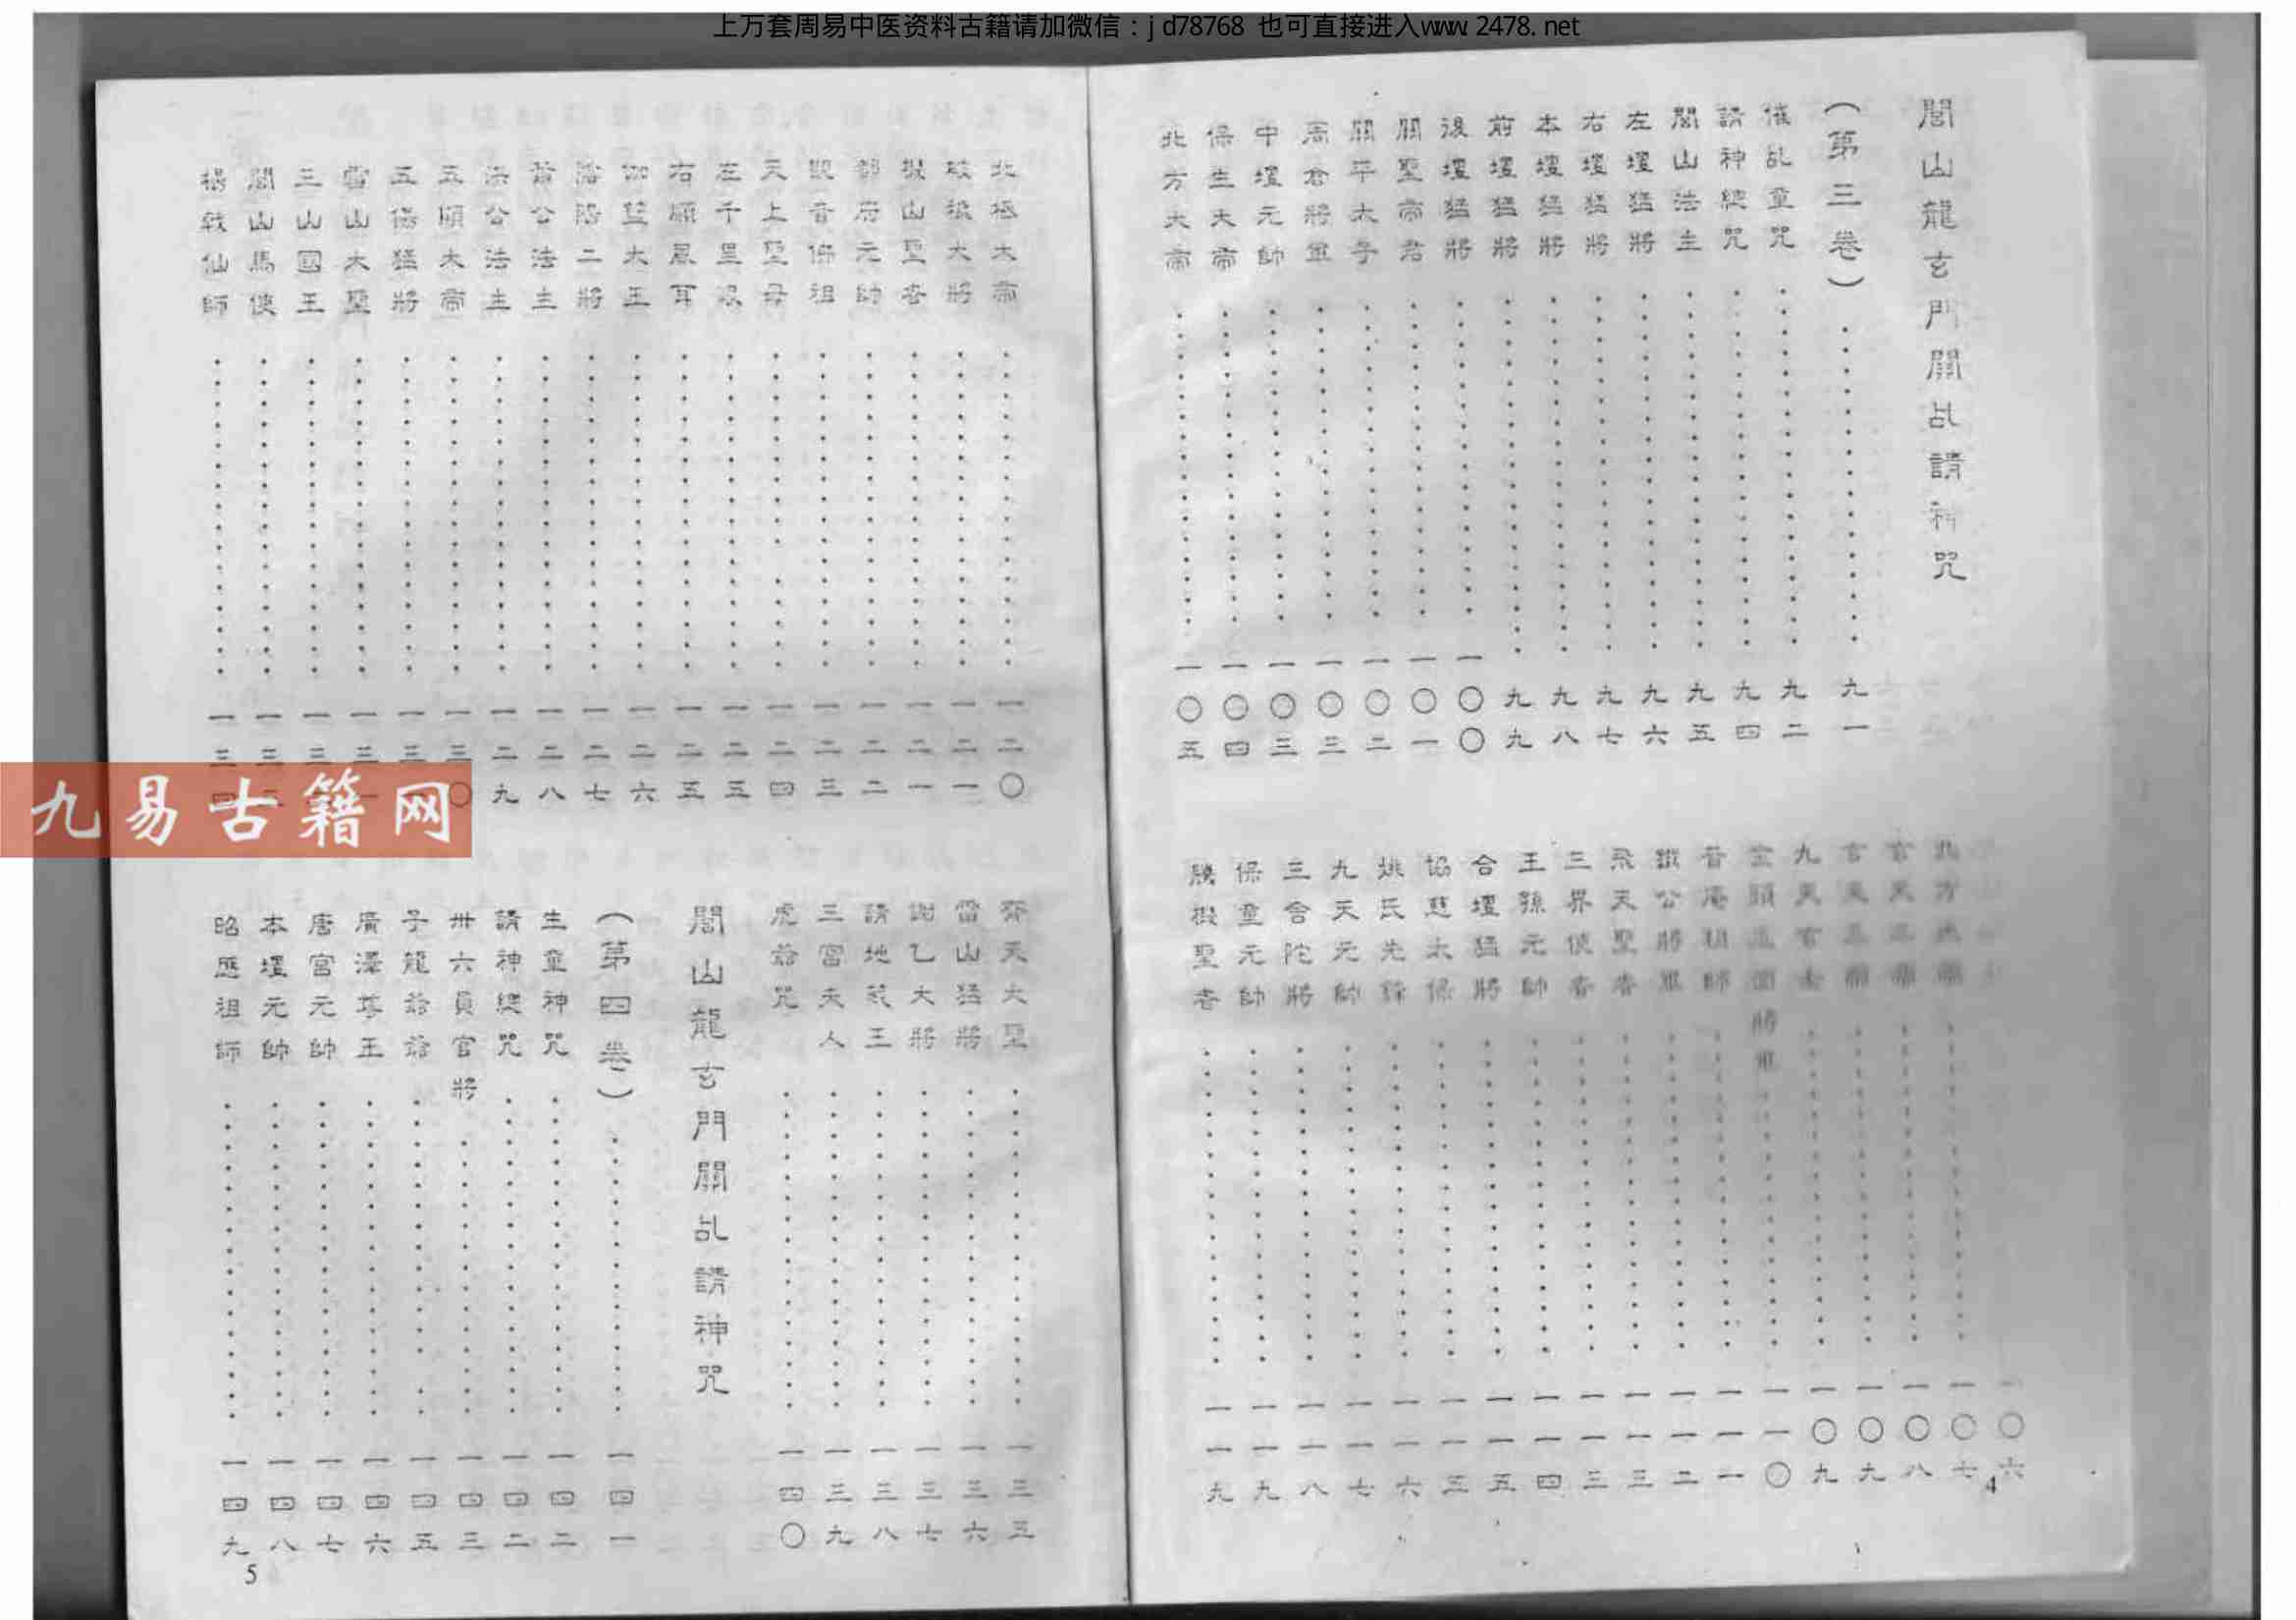 上万套周易中医资料古籍请加微信：jd78768 也可直接进入www.2478.net
閭山龍玄門關乩請神咒
（第三卷）九一
催乩童咒九二
請神總咒九四
閭山法主九五
左壇猛將九六
右壇猛將九七
本壇猛將九八
前壇猛將九九
後壇猛將一〇〇
關聖帝君一〇一
關平太子一〇二
周倉將軍一〇三
中壇元帥一〇三
保生大帝一〇四
北方大帝一〇五
一〇六
一〇七
一〇八
一〇九
九天玄女一〇九
一一〇
普庵祖師一一一
鐵公將軍一一二
飛天聖者一一三
三界使者一一三
王孫元帥一一四
合壇猛將一一五
協慈太保一一五
姚氏先鋒一一六
九天元帥一一七
三舍陀將一一八
保童元帥一一九
騰擬聖者一一九
4
北極大帝一二〇
大將一二一
擬山聖者一二一
都府元帥一二二
觀音佛祖一二三
天上聖母一二四
左千里眼一二五
右順風耳一二五
伽藍大王一二六
陰陽二將一二七
黃公法主一二八
洪公法主一二九
五順大帝一三〇
五傷猛將一三
雪山大聖一三
三山國王一三
閭山馬使一三
楊戩仙師一三四
齊天大聖一三五
雷山猛將一三六
謝乙大將一三七
請地藏王一三八
三宮夫人一三九
虎爺咒一四〇
閭山龍玄門關乩請神咒
（第四卷）一四一
生童神咒一四二
請神總咒一四二
卅六員官將一四三
子龍爺爺一四五
廣澤尊王一四六
唐宮元帥一四七
本壇元帥一四八
昭應祖師一四九
5
九易古籍网